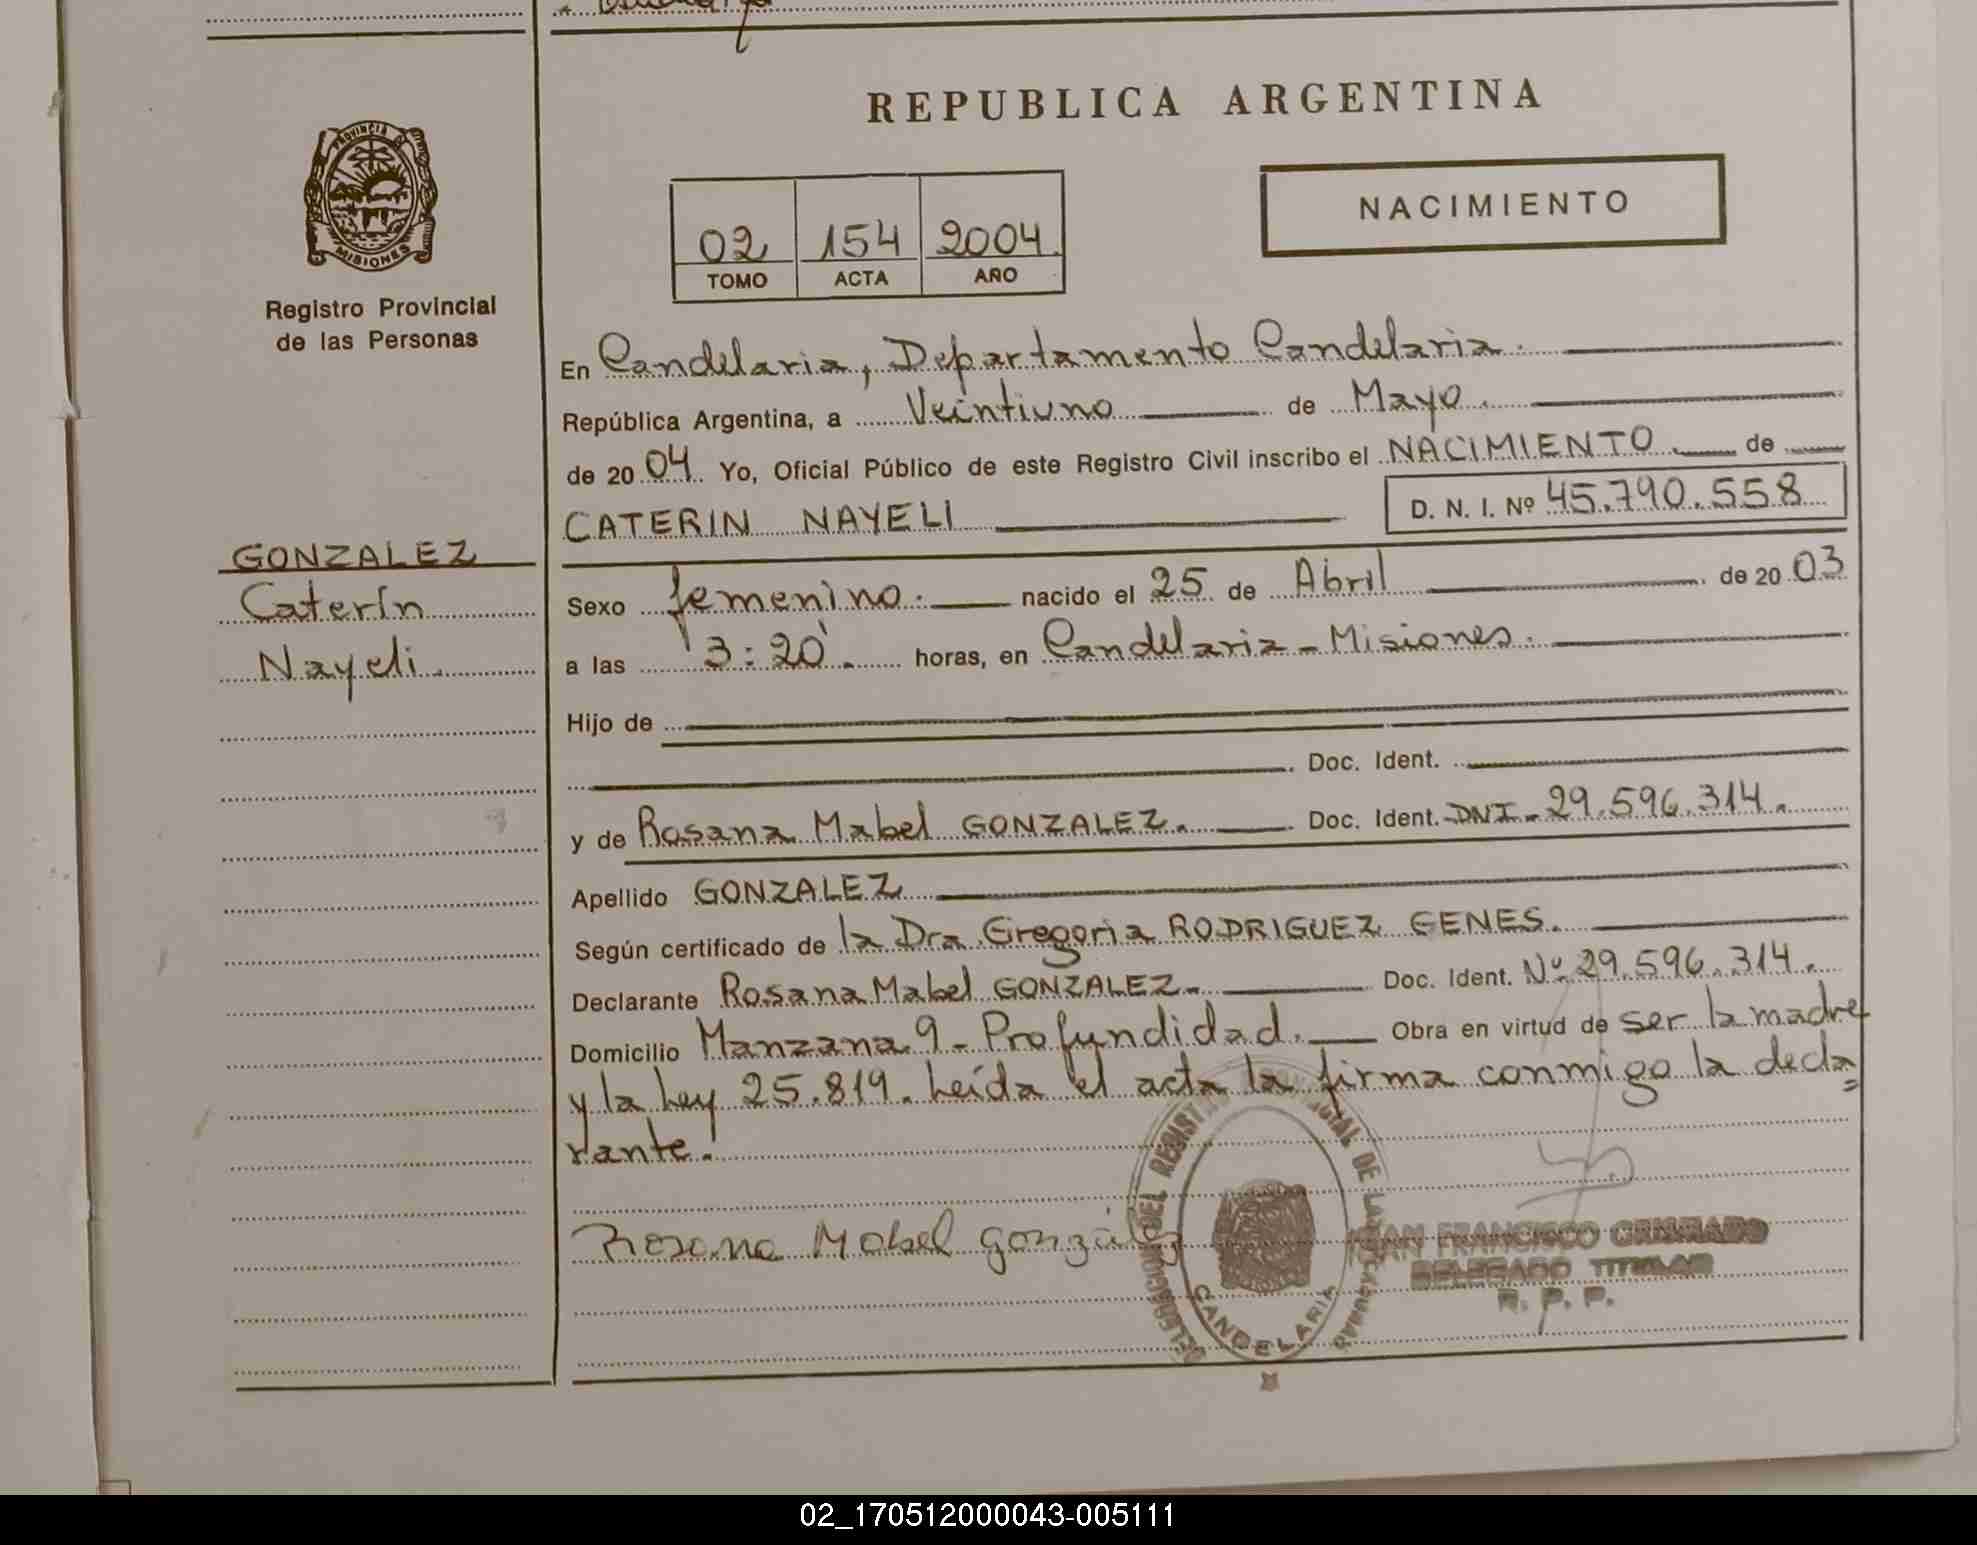 REPUBLICA ARGENTINA
PROVINCIA
MISIONES
Registro Provincial
de las Personas
02 154 2004
TOMO ACTA AÑO
NACIMIENTO
En Candelaria, Departamento Candelaria.
República Argentina, a Veintiuno de Mayo.
de 2004. Yo, Oficial Público de este Registro Civil inscribo el NACIMIENTO. de
CATERIN NAYELI D. N. I. Nº 45.790.558
GONZALEZ
Caterín
Nayeli.
Sexo femenino. nacido el 25 de Abril de 2003
a las 13:20. horas, en Candelaria - Misiones.
Hijo de
Doc. Ident.
y de Rosana Mabel GONZALEZ. Doc. Ident. DNI - 29.596.314.
Apellido GONZALEZ
Según certificado de la Dra Gregoria RODRIGUEZ GENES.
Declarante Rosana Mabel GONZALEZ. Doc. Ident. Nº 29.596.314.
Domicilio Manzana 9 - Profundidad. Obra en virtud de ser la madre
y la Ley 25.819. Leída el acta la firma conmigo la decla=
rante.
Rosana Mabel gonzález
DELEGACION DEL REGISTRO PROVINCIAL DE LAS
CANDELARIA
JUAN FRANCISCO
DELEGADO TITULAR
R. P. P.
02_170512000043-005111